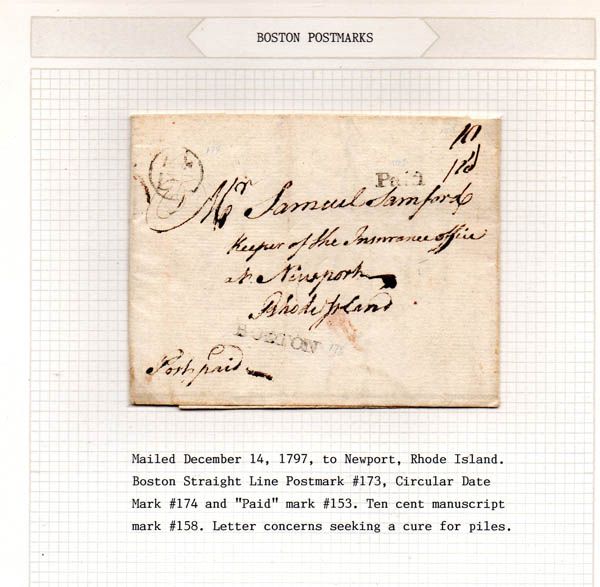 BOSTON POSTMARKS
10
Paid
Mr Samuel Samford
Keeper of the Insurance office
at Newport
Rhode Island
BOSTON
Post paid
Mailed December 14, 1797, to Newport, Rhode Island.
Boston Straight Line Postmark #173, Circular Date
Mark #174 and "Paid" mark #153. Ten cent manuscript
mark #158. Letter concerns seeking a cure for piles.